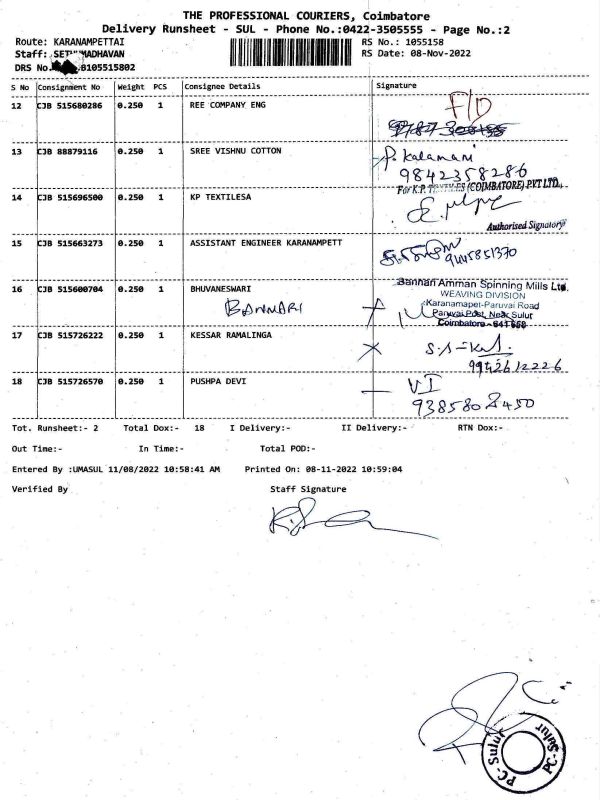 THE PROFESSIONAL COURIERS, Coimbatore
Delivery Runsheet - SUL - Phone No.:0422-3505555 - Page No.:2
Route: KARANAMPETTAI
RS No.: 1055158
Staff: MADHAVAN
RS Date: 08-Nov-2022
DRS No. 0105515802
S No Consignment No Weight PCS Consignee Details Signature
12 CJB 515680286 0.250 1 REE COMPANY ENG F/D
13 CJB 88879116 0.250 1 SREE VISHNU COTTON P. Kalamani
9842358286
14 CJB 515696500 0.250 1 KP TEXTILESA For K.P. TEXTILES (COIMBATORE) PVT LTD.,
Authorised Signatory
15 CJB 515663273 0.250 1 ASSISTANT ENGINEER KARANAMPETT
9445851370
16 CJB 515600704 0.250 1 BHUVANESWARI Bannari Amman Spinning Mills Ltd.
WEAVING DIVISION
BANNARI Karanamapet-Paruvai Road
Paruvai Post, Near Sulur
Coimbatore - 641 658
17 CJB 515726222 0.250 1 KESSAR RAMALINGA
9942612226
18 CJB 515726570 0.250 1 PUSHPA DEVI VI
9385808450
Tot. Runsheet:- 2 Total Dox:- 18 I Delivery:- II Delivery:- RTN Dox:-
Out Time:- In Time:- Total POD:-
Entered By :UMASUL 11/08/2022 10:58:41 AM Printed On: 08-11-2022 10:59:04
Verified By Staff Signature
PC-Sulur PC-Sulur